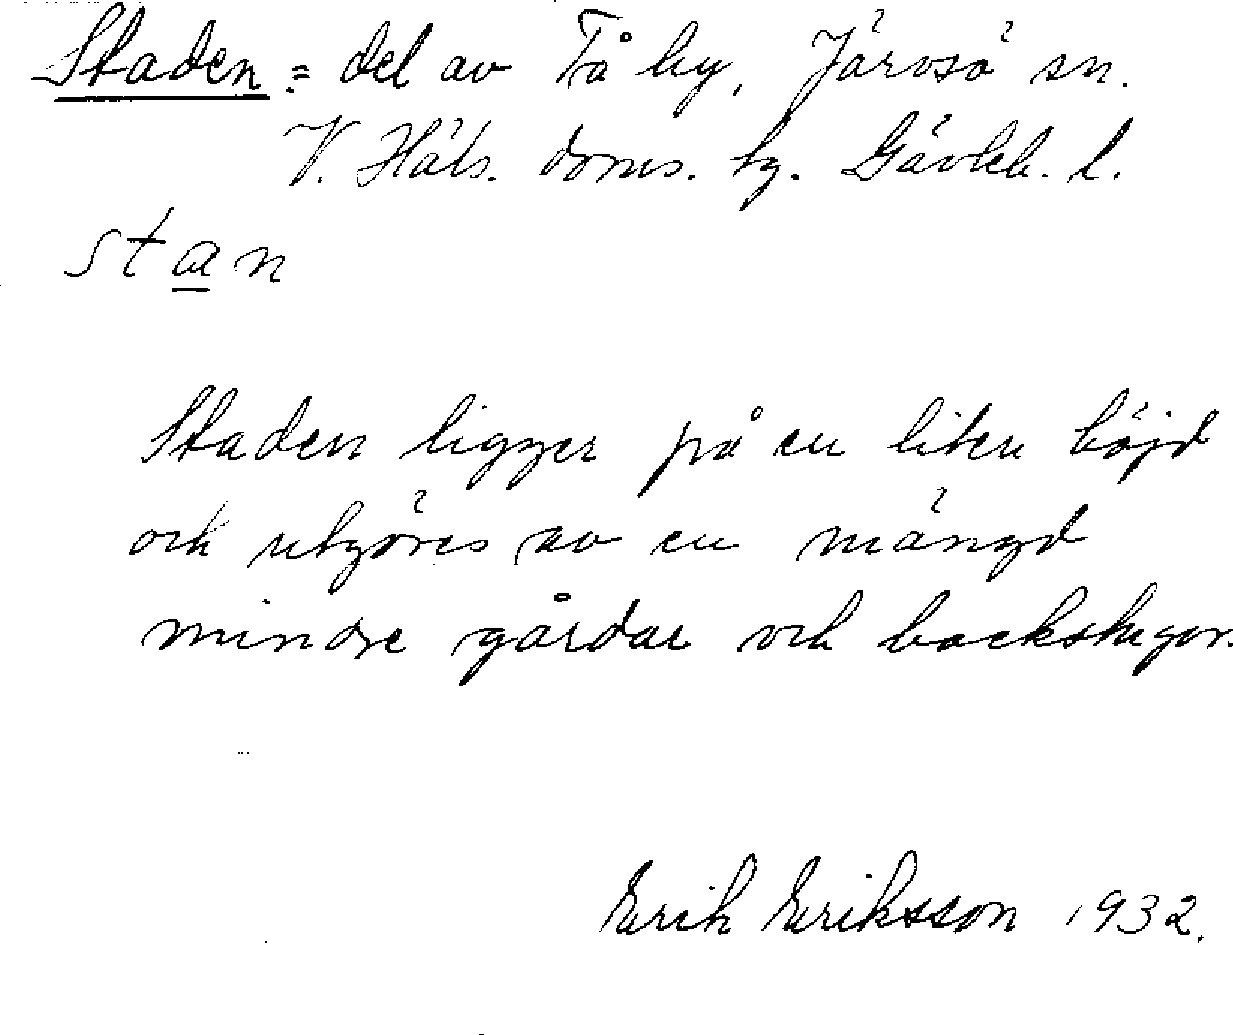 Staden = del av Tå by, Järvsö sn.
V. Häls. doms. hg. Gävleb. l.
stan
Staden ligger på en liten höjd
och utgöres av en mängd
mindre gårdar och backstugor.
Erik Eriksson 1932.